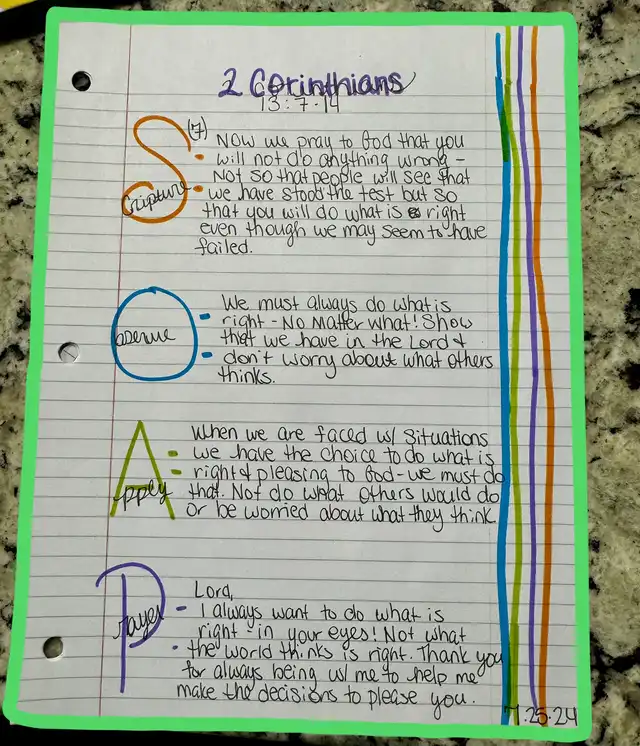 2 Corinthians
13:7-14
(7)
Scripture:
NOW we pray to God that you
will not do anything wrong -
Not so that people will see that
we have stood the test but so
that you will do what is right
even though we may seem to have
failed.
Observe:
We must always do what is
right - No matter what! Show
that we have in the Lord &
don't worry about what others
thinks.
Apply:
When we are faced w/ situations
we have the choice to do what is
right & pleasing to God - we must do
that. Not do what others would do
or be worried about what they think.
Prayer:
Lord,
I always want to do what is
right - in your eyes! Not what
the world thinks is right. Thank you
for always being w/ me to help me
make the decisions to please you.
7.25.24